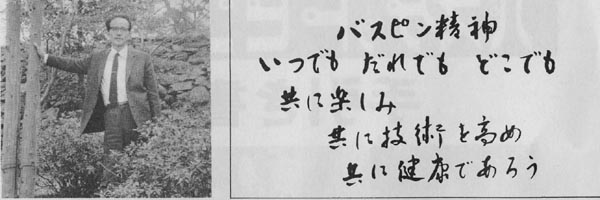 バスピン精神
いつでも だれでも どこでも
共に楽しみ
共に技術を高め
共に健康であろう